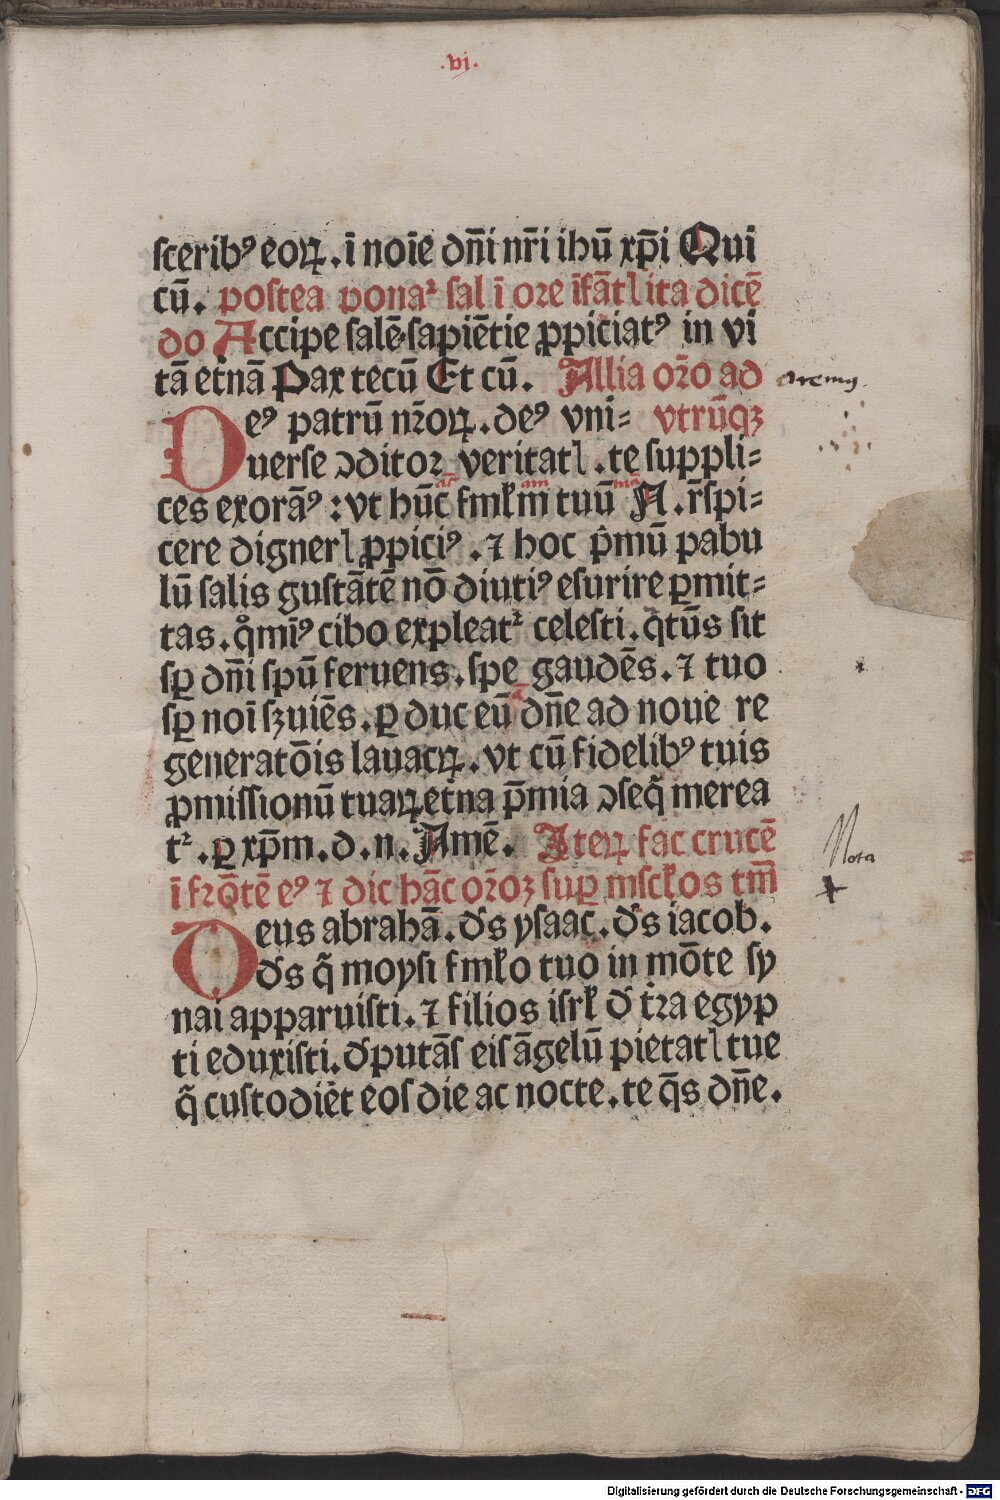 .vj.
ſceribꝰ eoꝝ. ī noīe dn̄i nr̄i ihū xp̄i Qui
cū. poſtea ponaᷣ ſal ī ore īfātꝭ ita dicē
do Accipe ſalē ſapiētie ꝓpiciatꝰ in vi
tā etnā Pax tecū Et cū. Allia oꝛ̄o ad
oremus.
Deꝰ patrū nꝛ̄oꝝ. deꝰ vni= vtrūqꝫ
uerſe ↄditoꝛ veritatꝭ. te ſuppli=
ces exorāꝰ : vt hūc fml̄m tuū N. r̄ſpi=
cere dignerꝭ ꝓpiciꝰ. ⁊ hoc p̄mū pabu
lū ſalis guſtātē nō diutiꝰ eſurire ꝑmit=
tas. qͦmīꝰ cibo expleatᷣ celeſti. q̄tūs ſit
ſꝑ dn̄i ſpū feruens. ſpe gaudēs. ⁊ tuo
ſꝑ noī ſꝫuiēs. ꝑ duc eū dn̄e ad noue re
generatōis lauacꝝ. vt cū fidelibꝰ tuis
ꝓmiſſionū tuaꝝ etna p̄mia ↄſeq̄ merea
tᷣ. ꝑ xp̄m. d. n. Amē. Iteꝝ fac crucē
ī frōtē eꝰ ⁊ dic hāc oꝛ̄oꝫ ſuꝑ mſcl̄os tm̄
Nota
Deus abrahā. d̄s yſaac. d̄s iacob.
d̄s q̄ moyſi fml̄o tuo in mōte ſy
nai apparuiſti. ⁊ filios iſrl̄ d̄ t̄ra egyp
ti eduxiſti. d̄putāſ eiſ āgelū pietatꝭ tue
q̄ cuſtodiēt eoſ die ac nocte. te q̄s dn̄e.
Digitalisierung gefördert durch die Deutsche Forschungsgemeinschaft - DFG